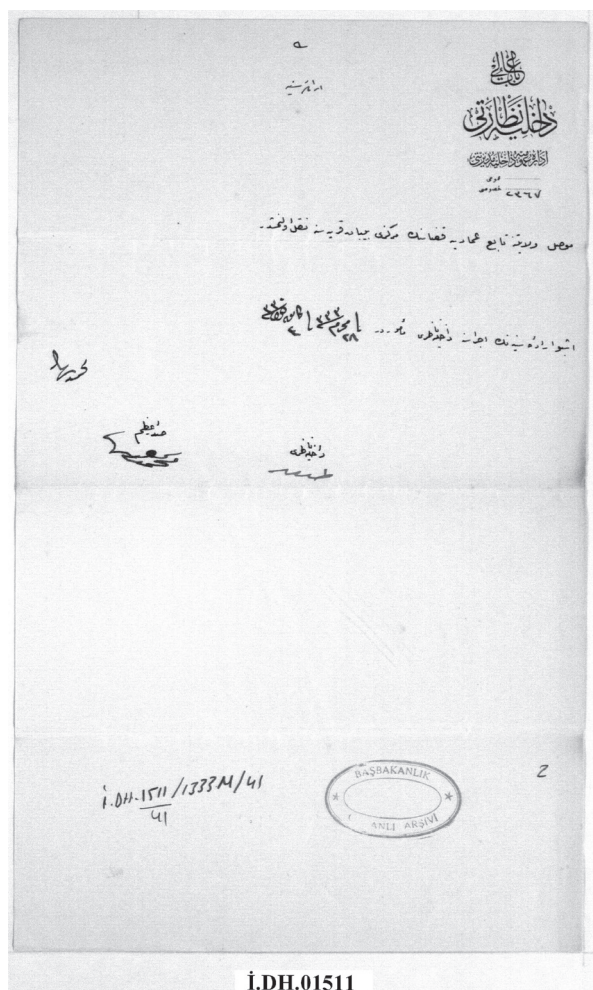 باب عالی
داخلیه نظارتی
اداره عمومیه داخلیه مدیریتی
عمومی
خصوصی
٢٣٦٧
اراده سنیه
موصل ولایتنه تابع عمادیه قضاسنك مركزی قریه سنه نقل اولنمشدر
اشبو اراده سنیه نك اجراسنه داخلیه ناظری مأموردر
٢٨ محرم ٣٣٣
صدر اعظم
داخلیه ناظری
İ.DH.1511/1333M/41
41
BAŞBAKANLIK
ANLI ARŞİVİ
2
İ.DH.01511